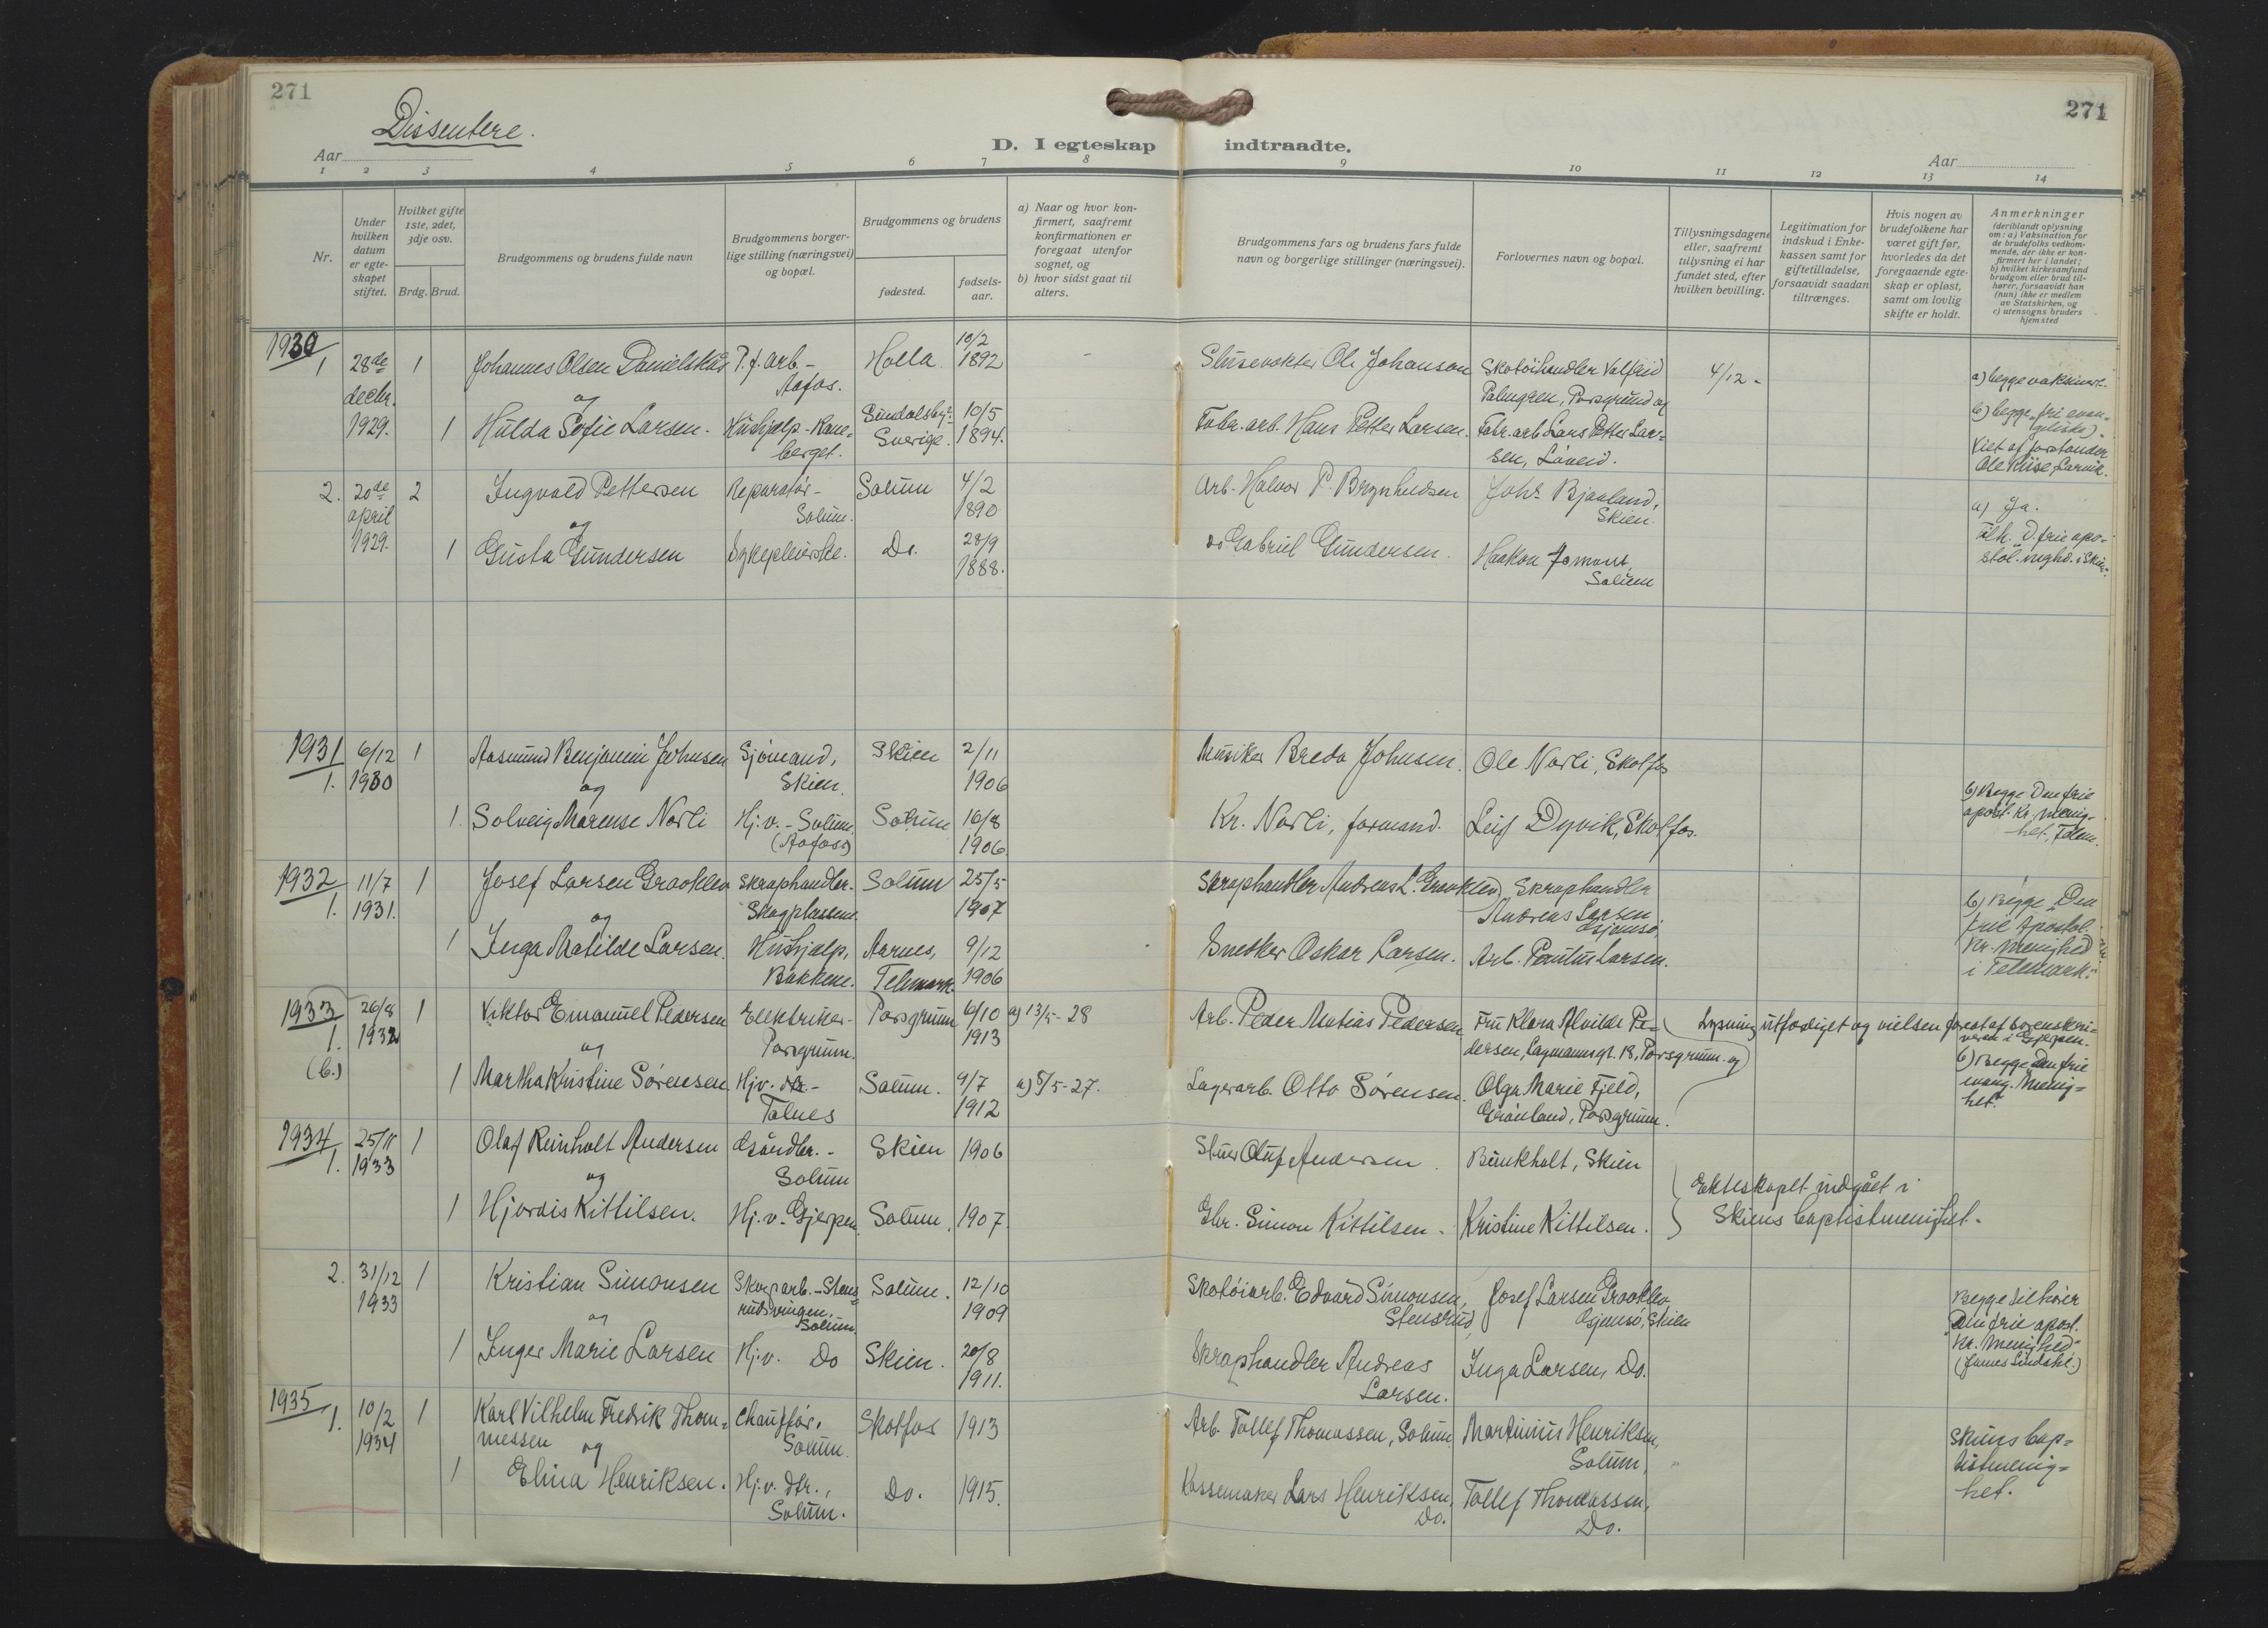 271
271
Dissentere.
D. I egteskap indtraadte.
Aar
Aar
1 2 3 4 5 6 7 8 9 10 11 12 13 14
Nr.
Under hvilken datum er egteskapet stiftet.
Hvilket gifte 1ste, 2det, 3dje osv.
Brdg. Brud.
Brudgommens og brudens fulde navn
Brudgommens borgerlige stilling (næringsvei) og bopæl.
Brudgommens og brudens
fødested.
fødselsaar.
a) Naar og hvor konfirmert, saafremt konfirmationen er foregaat utenfor sognet, og
b) hvor sidst gaat til alters.
Brudgommens fars og brudens fars fulde navn og borgerlige stillinger (næringsvei).
Forlovernes navn og bopæl.
Tillysningsdagene eller, saafremt tillysning ei har fundet sted, efter hvilken bevilling.
Legitimation for indskud i Enkekassen samt for giftetilladelse, forsaavidt saadan tiltrænges.
Hvis nogen av brudefolkene har været gift før, hvorledes da det foregaaende egteskap er opløst, samt om lovlig skifte er holdt.
Anmerkninger (deriblandt oplysning om: a) Vaksination for de brudefolks vedkommende, der ikke er konfirmert her i landet; b) hvilket kirkesamfund brudgom eller brud tilhører, forsaavidt han (hun) ikke er medlem av Statskirken, og c) utensogns bruders hjemsted
1930
1 28de decbr. 1929. 1 Johannes Olsen Danielskås P.f. arb. - Aafos. Holla 10/2 1892 Slusevokter Ole Johanson Skotøihandler Valfrid Palmgren, Porsgrund og 4/12 - a) begge vaksinert.
og
1 Hulda Sofie Larsen. Hushjælp - Sundalsby Sverige. 10/5 1894. Fabr. arb. Hans Petter Larsen. Fabr. arb. Lars Petter Larsen, b) begge "fri evangeliske". Viet af forstander Ole Kiise, Larvik.
2. 20de april 1929. 2 Ingvald Pettersen Reparatør - Solum. Solum 4/2 1890 Arb. Halvor P. Brynhildsen Johs. Bjaaland, Skien. a) Ja.
og
1 Gusta Gundersen Sykepleierske. Do. 28/9 1888. do Gabriel Gundersen. Haakon Solum Tilh. D. frie apostol. mghd. i Skien.
1931
1. 6/12 1930 1 Aasmund Benjamin Johnsen Sjømand, Skien. Skien 2/11 1906 Musiker Breda Johnsen. Ole Narli, Skotfos
og
1. Solveig Marense Narli Hj.v. - Solum. (Aafoss) Solum 16/8 1906. Kr. Narli, formand. Leif Dyvik, Skotfos. b) Begge Den frie apost. kr. menighet, Telem.
1932
1. 11/7 1931. 1 Josef Larsen Graaklev Skraphandler. Skogplassene. Solum 25/5 1907 Skraphandler Andreas L. Graaklev Skraphandler Andreas Larsen b) Begge "Den frie Apostol. kr. menighed i Telemark."
og
1 Inga Matilde Larsen. Hushjælp, Bakkene. Aarnes, Telemark. 9/12 1906 Snedker Oskar Larsen. Arb. Paulus Larsen.
1933
1. (b.) 26/8 1932 1 Viktor Emanuel Pedersen Elektriker - Porsgrunn. Porsgrunn 6/10 1913 a) 13/5 - 28 Arb. Peder Matias Pedersen Fru Klara Alvilde Pedersen, Lagmannsgt. 18, Porsgrunn. og Lysning utfærdiget og vielsen foretat af sorenskriveren i Gjerpen.
og
1 Martha Kristine Sørensen Hjv. dtr. - Solum. 9/7 1912 a) 8/5 - 27. Lagerarb. Otto Sørensen. Olga Marie Fjeld, Grønland, Porsgrunn. b) Begge Den frie evang. Menighet.
1934
1. 25/11 1933 1 Olaf Reinholt Andersen Solum Skien 1906 Stuer Oluf Andersen. Bunkholt, Skien
og
1 Hjørdis Kittilsen. Hj.v. Gjerpen. Solum. 1907. Gbr. Simon Kittilsen. Kristine Kittilsen. Ekteskapet indgået i Skiens baptistmenighet.
2. 31/12 1933 1 Kristian Simonsen Skogarb. - Stensrudsvingen. Solum. Solum. 12/10 1909 Skotøiarb. Edvard Simonsen, Stensrud, Josef Larsen Graaklev Osjemsø, Skien
og
1 Inger Marie Larsen Hj.v. Do Skien. 20/8 1911. Skraphandler Andreas Larsen. Inga Larsen, Do. Begge tilhører "Den frie apost. kr. Menighed" (James Lindahl.)
1935
1. 10/2 1934 1 Karl Vilhelm Fredrik Thommessen Chauffør, Solum. Skotfos 1913 Arb. Tollef Thomassen, Solum Martinius Henriksen, Solum,
og
1 Elina Henriksen. Hj.v. dtr., Solum. Do. 1915. Kassemaker Lars Henriksen, Do. Tollef Thomassen, Do. Skiens baptistmenighet.